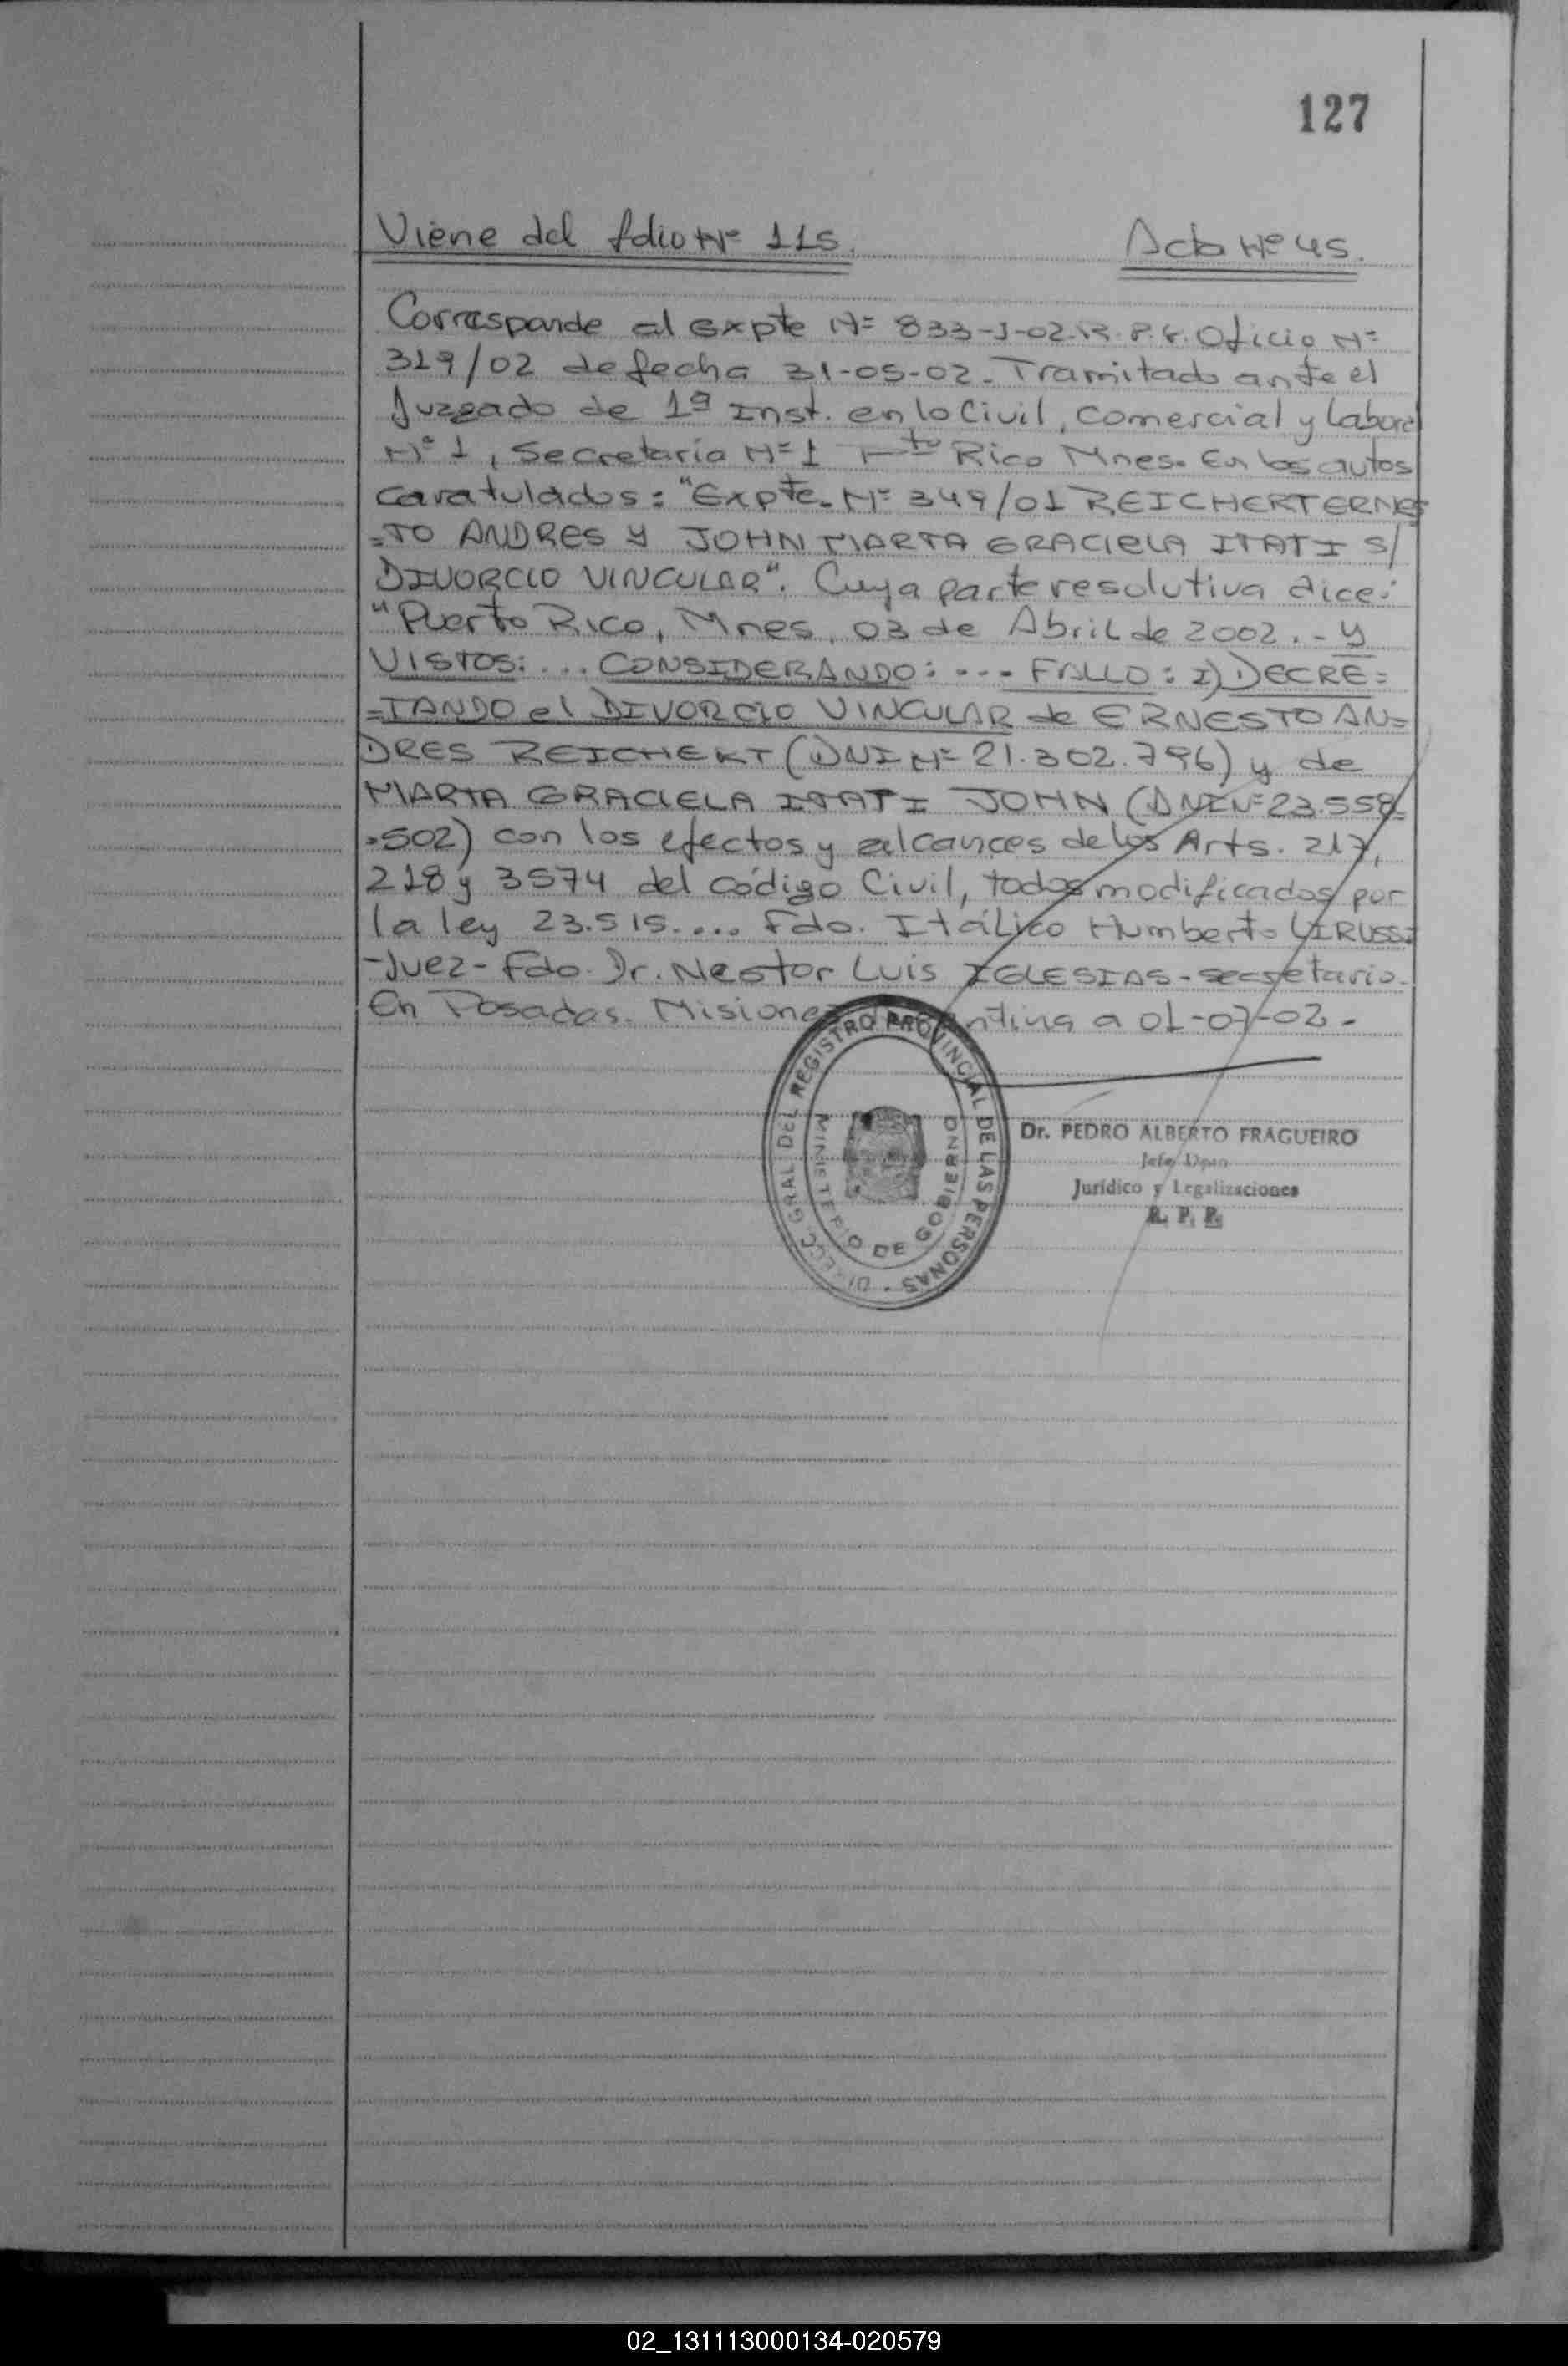 127
Viene del folio Nº 115. Acta Nº 45.
Corresponde al Expte Nº 833-J-02.R.P.P. Oficio Nº
319/02 de fecha 31-05-02. Tramitado ante el
Juzgado de 1ª Inst. en lo Civil, Comercial y Laboral
Nº 1, Secretaría Nº 1 Pto Rico Mnes. En los autos
caratulados: "Expte. Nº 349/01 REICHERT ERNES
=TO ANDRES Y JOHN MARTA GRACIELA ITATI S/
DIVORCIO VINCULAR". Cuya parte resolutiva dice:
"Puerto Rico, Mnes, 03 de Abril de 2002.- Y
VISTOS: ... CONSIDERANDO: ... FALLO: I) DECRE=
=TANDO el DIVORCIO VINCULAR de ERNESTO AN=
DRES REICHERT (DNI Nº 21.302.796) y de
MARTA GRACIELA ITATI JOHN (DNI Nº 23.558.
.502) con los efectos y alcances de los Arts. 217,
218 y 3574 del Código Civil, todos modificados por
la ley 23.515.... Fdo. Itálico Humberto LIRUSSI
-Juez- Fdo. Dr. Nestor Luis IGLESIAS - secretario.
En Posadas. Misiones a 01-07-02.-
DIRECC GRAL DEL REGISTRO PROVINCIAL DE LAS PERSONAS -
MINISTERIO DE GOBIERNO
Dr. PEDRO ALBERTO FRAGUEIRO
Jefe Dpto
Jurídico y Legalizaciones
R. P. P.
02_131113000134-020579